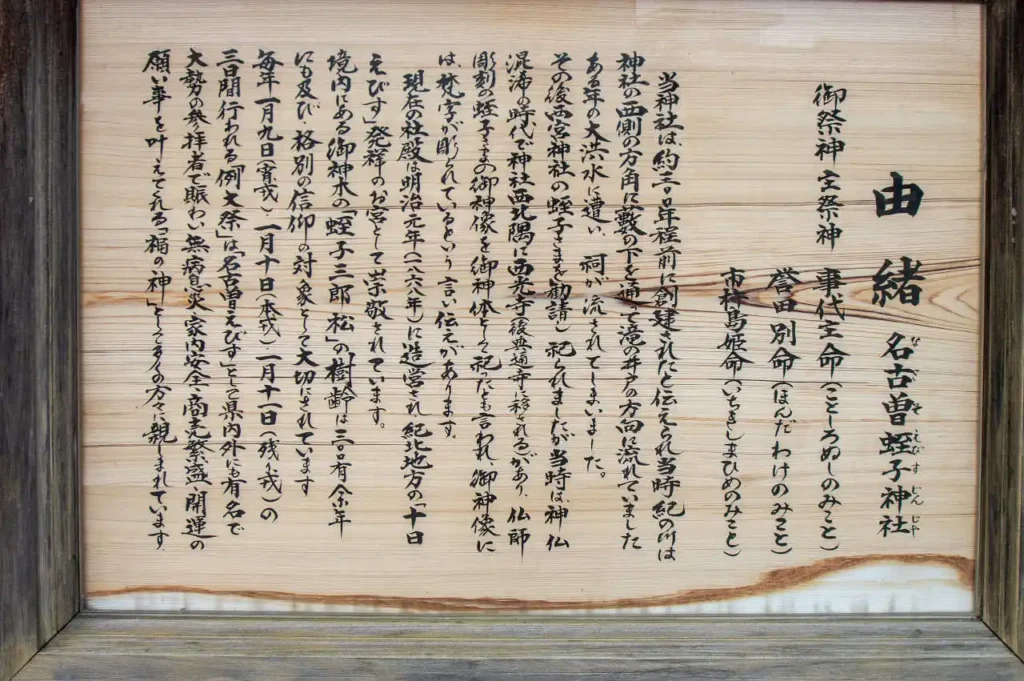 由緒 名古曽蛭子神社
なごそえびすじんじゃ
御祭神 主祭神 事代主命(ことしろぬしのみこと)
誉田別命(ほんだわけのみこと)
市杵島姫命(いちきしまひめのみこと)
当神社は、約三〇〇年程前に創建されたと伝えられ当時紀の川は
神社の西側の方角に藪の下を通って滝の井戸の方向に流れていました
ある年の大洪水に遭い、祠が流されてしまいました。
その後西宮神社の蛭子さまを勧請し祀られましたが当時は、神仏
混淆の時代で神社西北隅に西光寺(後興通寺に移される)があり、仏師
彫刻の蛭子さまの御神像を御神体として祀ったとも言われ、御神像に
は、梵字が彫られているという言い伝えがあります。
現在の社殿は明治元年(一八六八年)に造営され、紀北地方の「十日
えびす」発祥のお宮として崇敬されています。
境内にある御神木の「蛭子三郎松」の樹齢は三〇〇有余年
にも及び、格別の信仰の対象として大切にされています
毎年一月九日(宵戎)、一月十日(本戎)、一月十一日(残り戎)の
三日間行われる「例大祭」は、「名古曽えびす」として県内外にも有名で
大勢の参拝者で賑わい無病息災、家内安全、商売繁盛、開運の
願い事を叶えてくれる「福の神」として多くの方々に親しまれています。